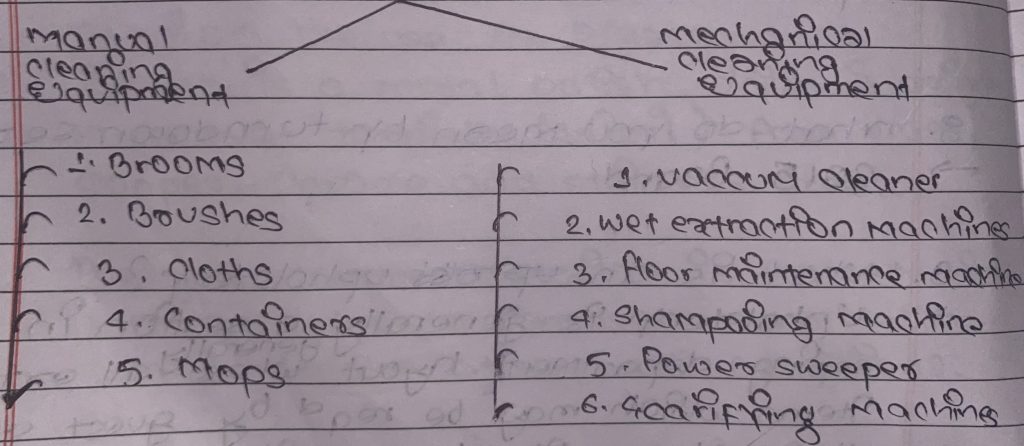 Manual
cleaning
Equipment
1. Brooms
2. Boushes
3. Cloths
4. Containers
5. Mops
Mechanical
cleaning
Equipment
1. Vaccum cleaner
2. Wet extraction Machines
3. floor maintenance machine
4. Shampooing Machine
5. Power sweeper
6. Scarifying Machines